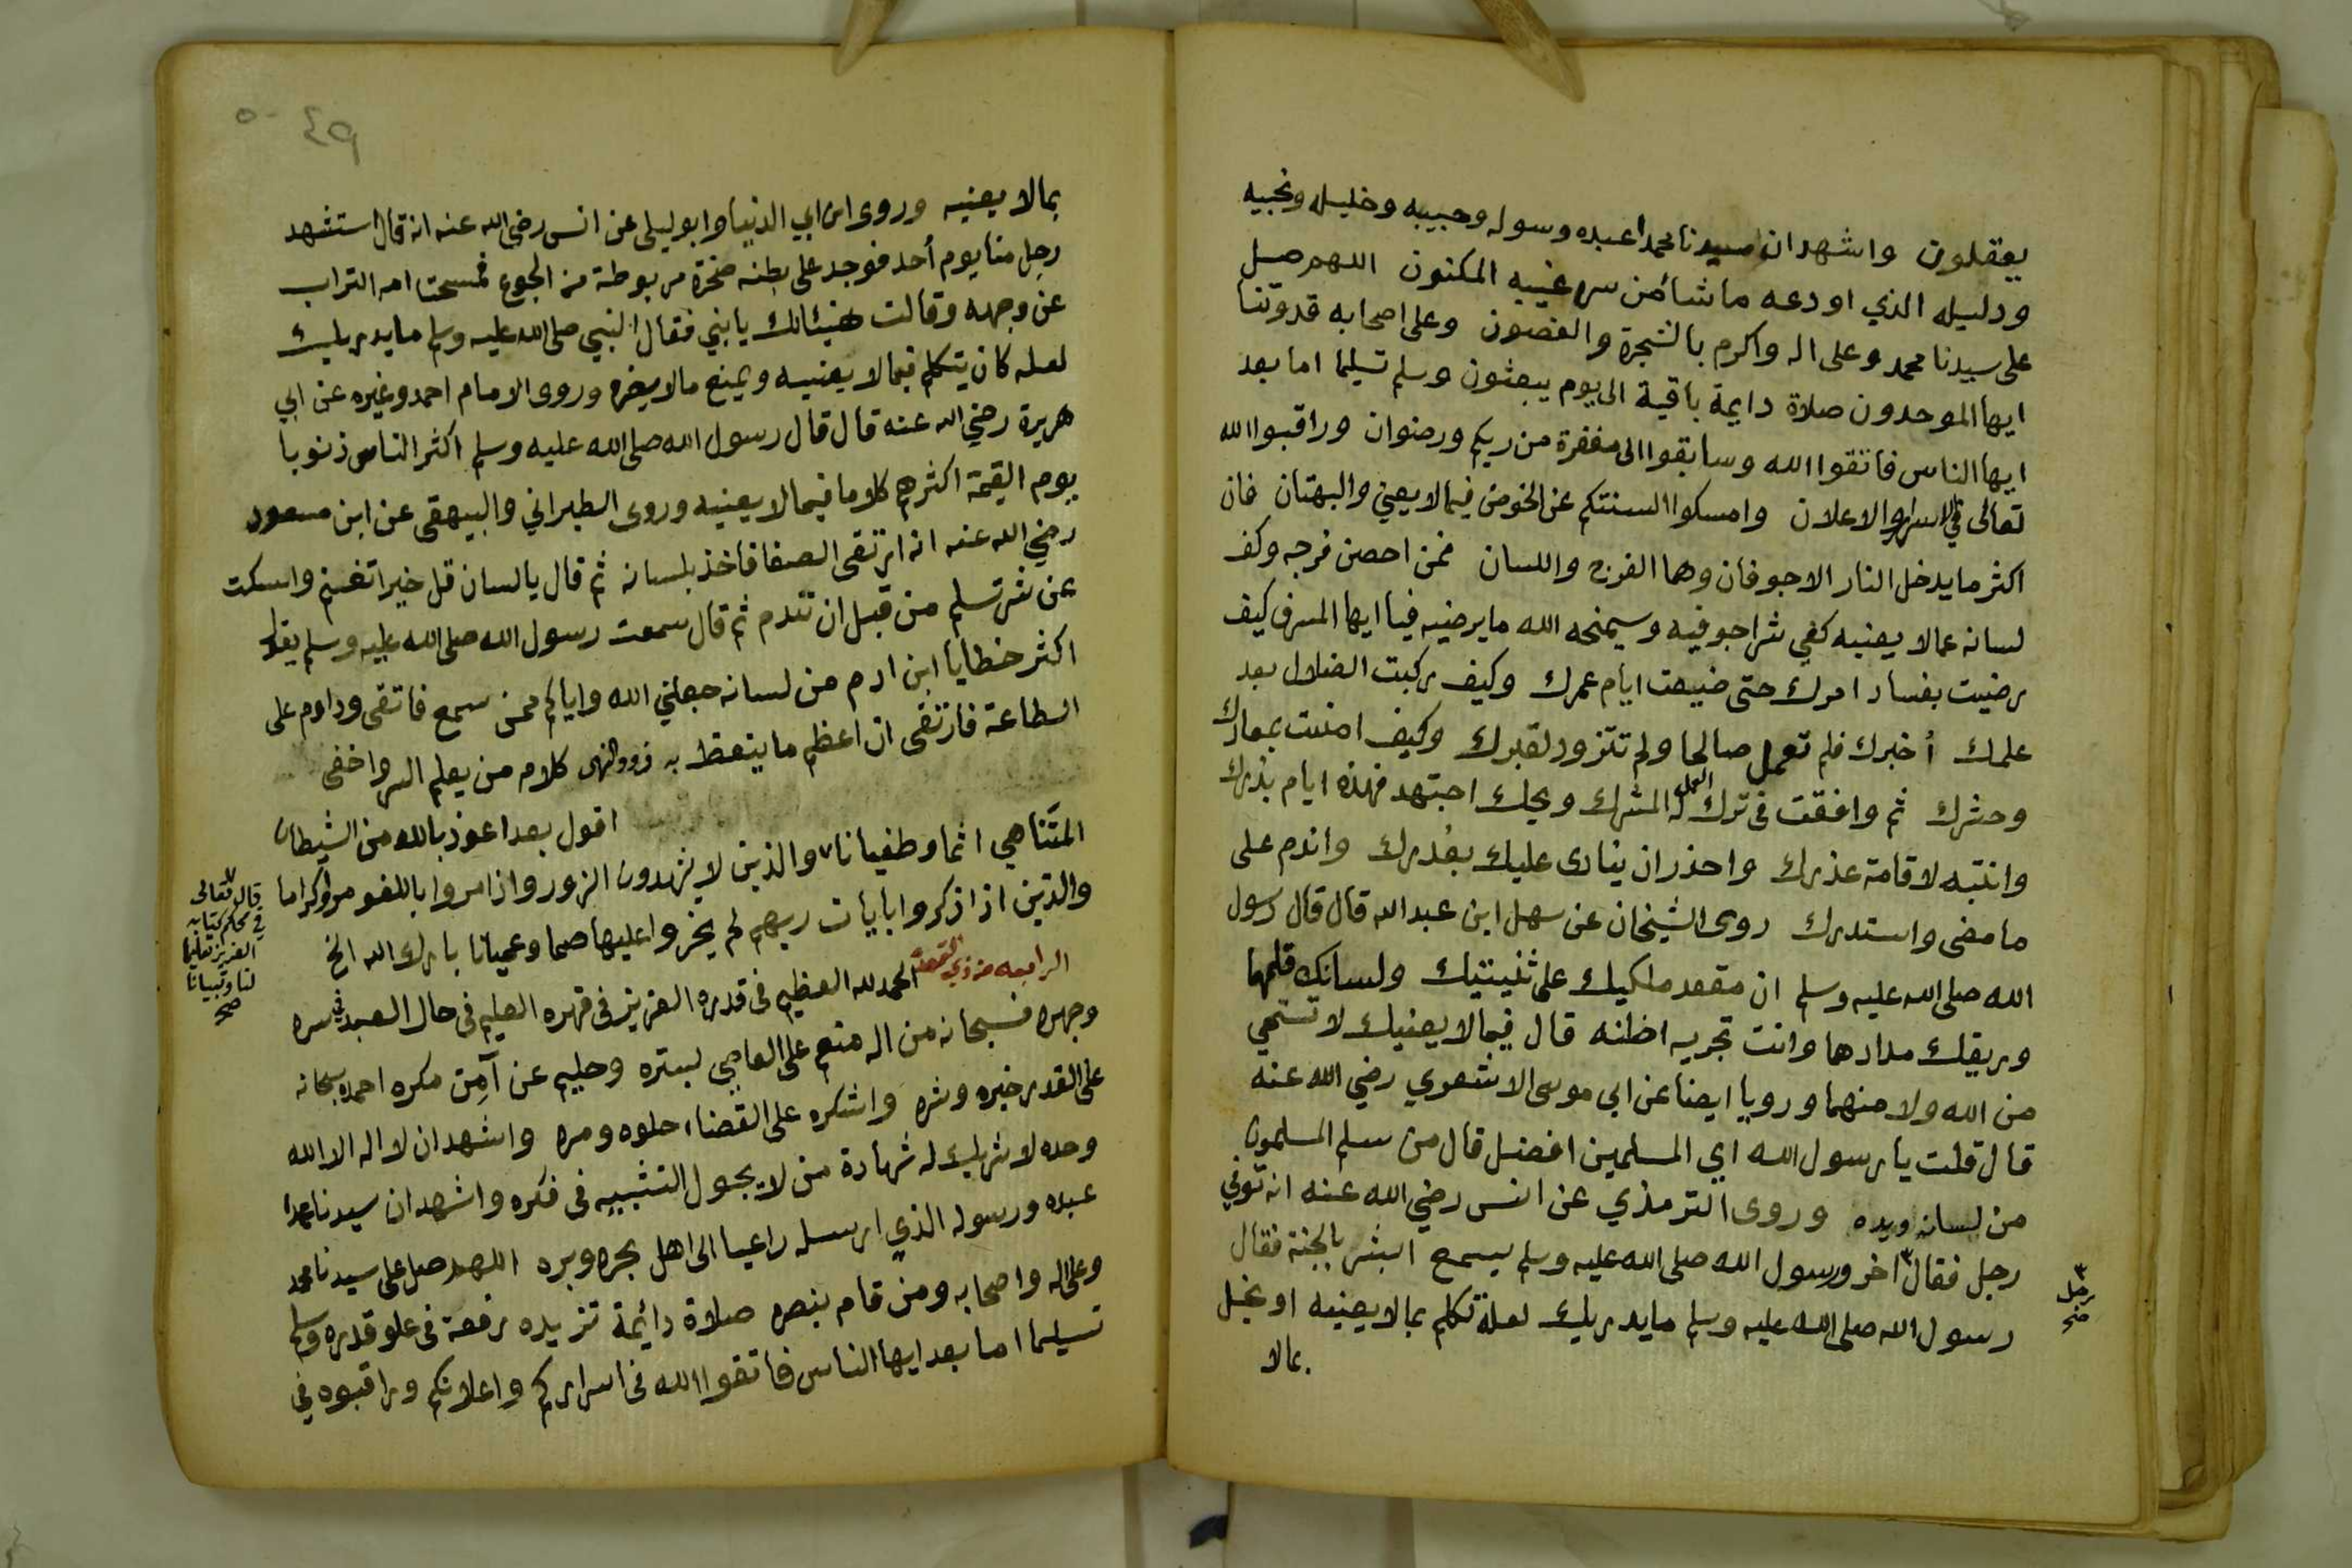 يعقلون واشهد ان سيدنا محمدا عبده وسوله وحبيبه وخليله ونجيبه
ودليله الذي اودعه ما شائن سر غيبه المكنون اللهم صل
على سيدنا محمد وعلى اله واكرم بالشجرة والغصون وعلى اصحابه قدوتنا
ايها الموحدون صلاة دايمة باقية الى يوم يبعثون وسلم تسليما اما بعد
ايها الناس فاتقوا الله وسابقوا الى مغفرة من ربكم ورضوان وراقبوا الله
تعالى في الاسرار والاعلان وامسكوا السنتكم عن الخوض فيما لا يعني والبهتان فان
اكثر ما يدخل النار الاجوفان وهما الفرج واللسان فمن احصن فرجه وكف
لسانه عما لا يعنيه كفي شر اجوفيه وسيمنحه الله ما يرضيه فيا ايها المسرف كيف
رضيت بفساد امرك حتى ضيعت ايام عمرك وكيف ركبت الضلال بعد
علمك أخبرك فلم تعمل صالحا ولم تتزود لقبرك وكيف امنت بمعادك
وحشرك ثم وافقت في ترك العمل له المشرك ويحك اجتهد فهذه ايام بذرك
وانتبه لاقامة عذرك واحذر ان ينادى عليك بغدرك واندم على
ما مضى واستدرك روى الشيخان عن سهل ابن عبد الله قال قال رسول
الله صلى الله عليه وسلم ان مقعد ملكيك على ثنيتيك ولسانك قلمها
وريقك مدادها وانت تجريه اظنه قال فيما لا يعنيك لا تستحي
من الله ولا منهما ورويا ايضا عن ابي موسى الاشعري رضي الله عنه
قال قلت يا رسول الله اي المسلمين افضل قال من سلم المسلمون
من لسانه ويده وروى الترمذي عن انس رضي الله عنه انه توفي
رجل فقال ٣ اخر ورسول الله صلى الله عليه وسلم يسمع ابشر بالجنة فقال
رسول الله صلى الله عليه وسلم ما يدريك لعله تكلم بما لا يعنيه او بخل
بمالا
٣
رجل
صح
٤٩ ٥٠
بمالا يعنيه وروى ابن ابي الدنيا وابو ليلى عن انس رضي الله عنه انه قال استشهد
رجل منا يوم أحد فوجد على بطنه صخرة مربوطة من الجوع فمسحت امه التراب
عن وجهه وقالت هنيئا لك يا بني فقال النبي صلى الله عليه وسلم ما يدريك
لعله كان يتكلم فيما لا يعنيه ويمنع ما لا يضره وروى الامام احمد وغيره عن ابي
هريرة رضي الله عنه قال قال رسول الله صلى الله عليه وسلم اكثر الناس ذنوبا
يوم القيمة اكثرهم كلاما فيما لا يعنيه وروى الطبراني والبيهقى عن ابن مسعود
رضي الله عنه انه ارتقى الصفا فاخذ بلسانه ثم قال يا لسان قل خيرا تغنم واسكت
عن شر تسلم من قبل ان تندم ثم قال سمعت رسول الله صلى الله عليه وسلم يقول
اكثر خطايا ابن ادم من لسانه جعلني الله واياكم ممن سمع فاتقى وداوم على
الطاعة فارتقى ان اعظم ما يتعظ به ذوو النهى كلام من يعلم السر واخفى
اقول بعد اعوذ بالله من الشيطان
المتناهي اثما وطغيانا ٧ والذين لا يشهدون الزور واذا مروا باللغو مروا كراما
والذين اذا ذكروا بايات ربهم لم يخروا عليها صما وعميانا بارك الله الخ
الرابعه من ذي القعدة الحمد لله العظيم في قدره العزيز في قهره العليم في حال العبد في سره
وجهره فسبحانه من اله منعم على العاصي بستره وحليم عن آمن مكره احمده سبحانه
على القدر خيره وشره واشكره على القضاء حلوه ومره واشهد ان لا اله الا الله
وحده لا شريك له شهادة من لا يجول التشبيه في فكره واشهد ان سيدنا محمدا
عبده ورسوله الذي ارسله راعيا الى اهل بحره وبره اللهم صل على سيدنا محمد
وعلى اله واصحابه ومن قام بنصره صلاة دائمة تزيده رفعة في علو قدره وسلم
تسليما اما بعد ايها الناس فاتقوا الله في اسراركم واعلانكم وراقبوه في
٧
قال تعالى
في محكم كتابه
العزيز تعليما
لنا وتبيانا
صح